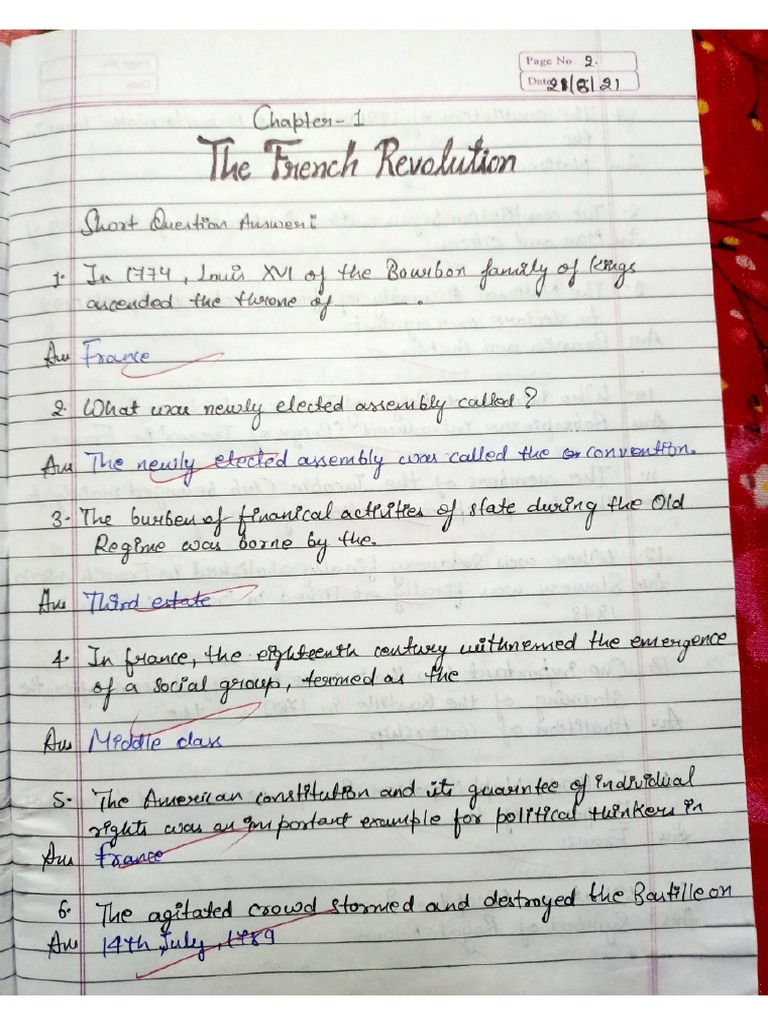 Page No. 2.
Date 21/8/21
Chapter-1
The French Revolution
Short Question Answer:
1. In 1774, Louis XVI of the Bourbon family of Kings
ascended the throne of .
Ans France
2. What was newly elected assembly called?
Ans The newly elected assembly was called the convention.
3. The burben of finanical activities of state during the Old
Regime was borne by the.
Ans Third estate
4. In france, the eighteenth century withnemed the emergence
of a social group, termed as the
Ans Middle class
5. The American constitution and its guarntee of individual
rights was an important example for political thinkers in
Ans France
6. The agitated crowd stormed and destroyed the Bastille on
Ans 14th July, 1789